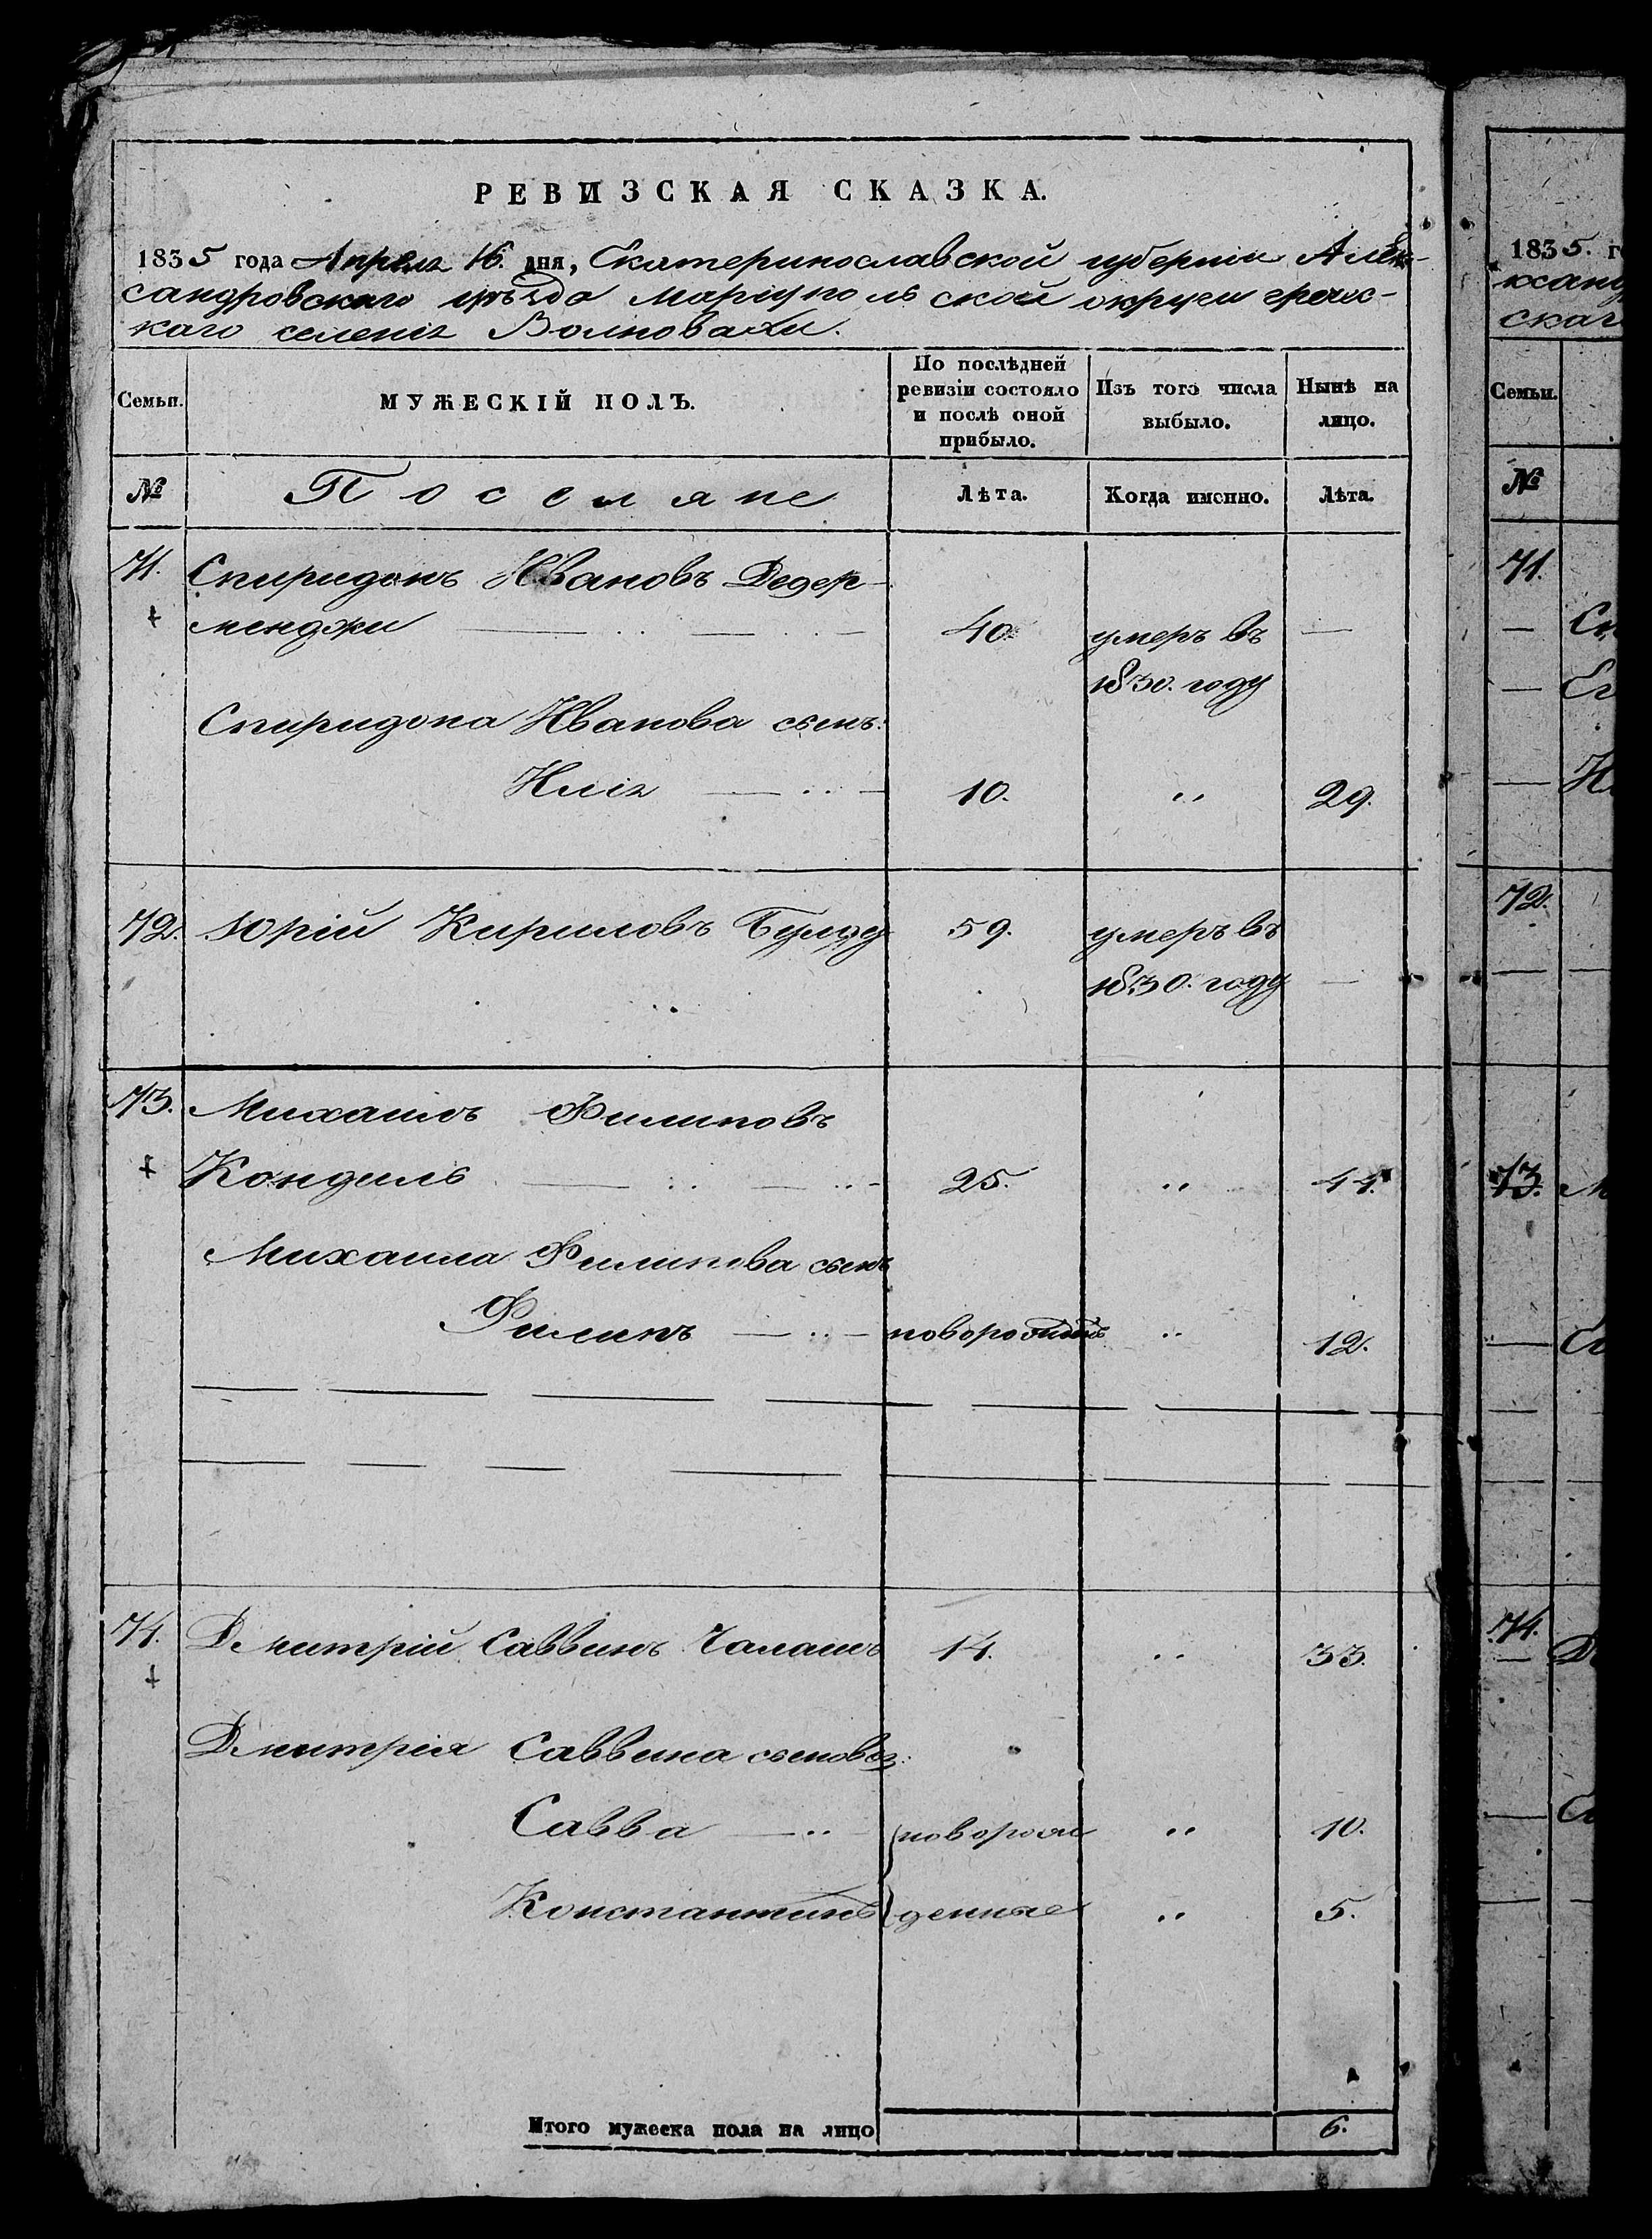 РЕВИЗСКАЯ СКАЗКА.
1835 года Апреля 16. дня, Екатеринославской губернии Алек-
сандровскаго уѣзда Мариупольской округи гречес-
каго селенія Волновахи.
Семьи.
МУЖЕСКІЙ ПОЛЪ.
По послѣдней ревизіи состояло и послѣ оной прибыло.
Изъ того числа выбыло.
Нынѣ на лицо.
№ Поселяне Лѣта. Когда именно. Лѣта.
71. Спиридонъ Ивановъ Дедер-
менджи 40. умеръ въ —
1830. году
Спиридона Ивановa сынъ:
Илія 10. „ 29.
72. Юрій Кириловъ 59. умеръ въ
1830. году —
73. Михаилъ Филиповъ
Кондиль 25. „ 44.
Михаила Филипова сынъ
Филипъ новорожденъ „ 12.
74. Дмитрій Саввинъ Чалашъ 14. „ 33.
Дмитрія Саввина сыновья:
Савва новорож „ 10.
Константинъ денные „ 5.
Итого мужеска пола на лицо 6.
1835. г
ксанд
скаг
Семьи.
№
71.
— Сп
— Ег
— И
72.
73. М
74.